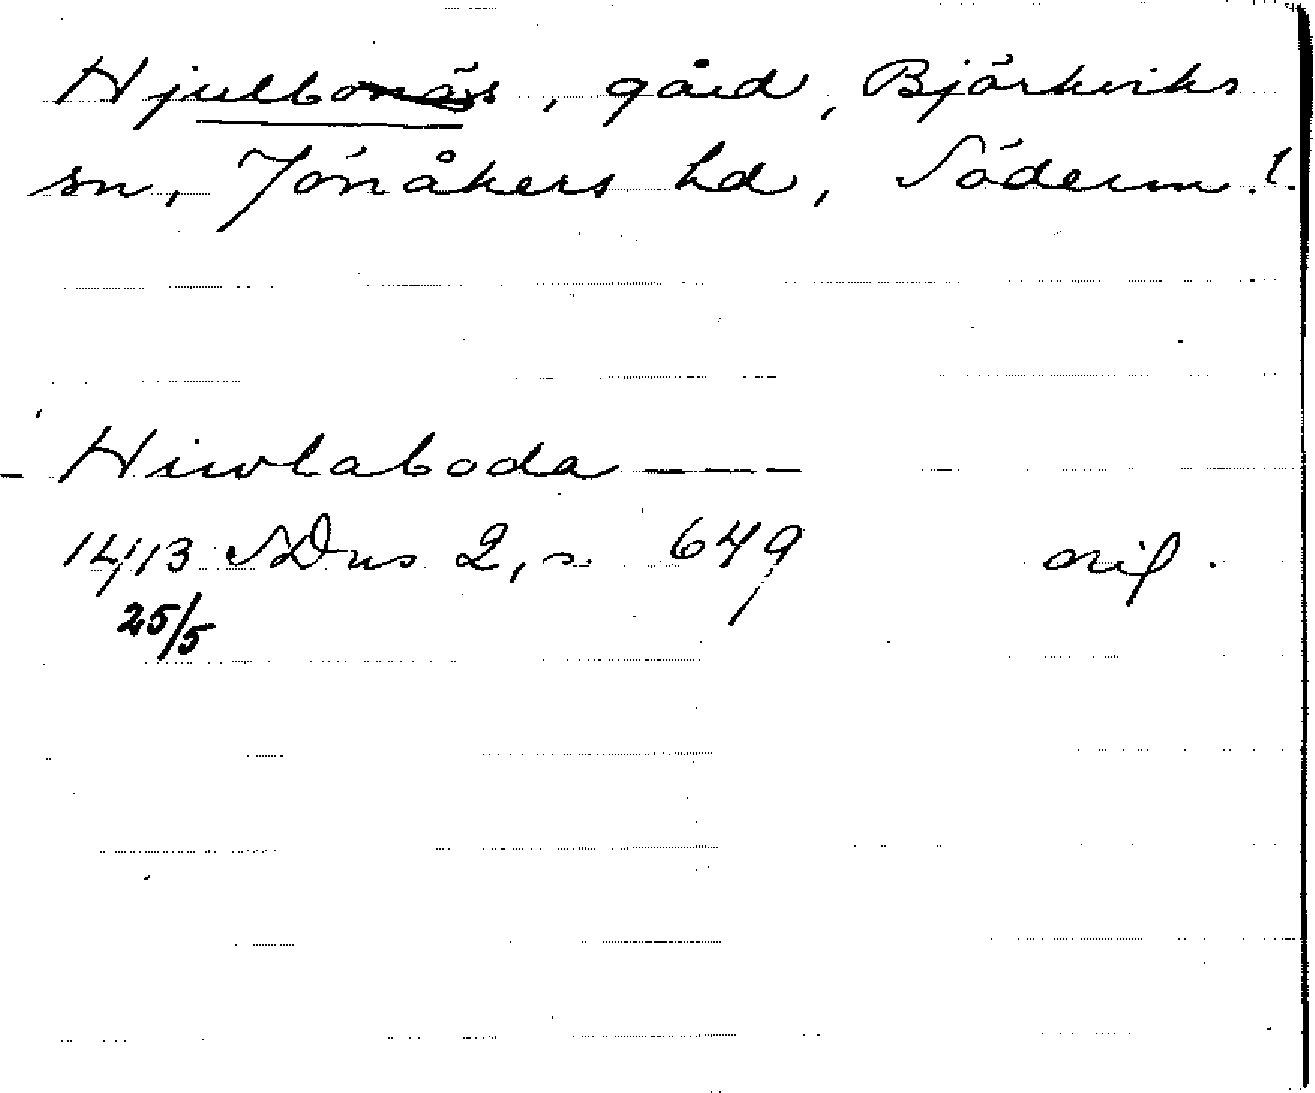 Hjulbonäs, gård, Björkviks
sn, Jönåkers hd, Söderm.l.
- Hiwlaboda ———
1413 SDns 2, s. 649 orig.
25/5